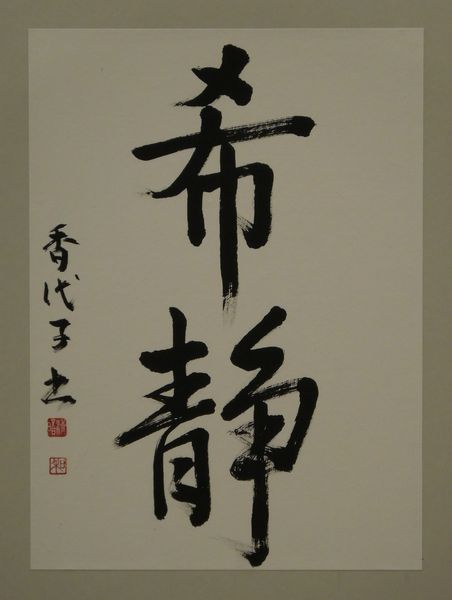 希静
香代子書